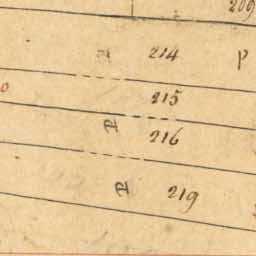 209
214 P
215
P 216
P 219